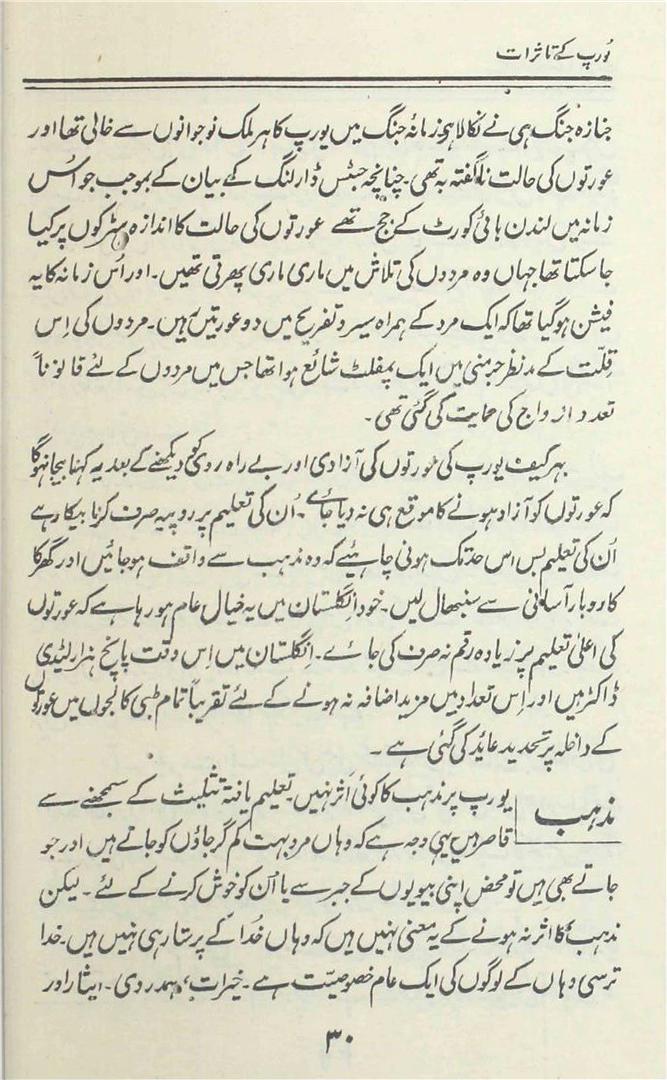 یورپ کے تاثرات
جنازہ جنگ ہی نے نکالا ہو زمانۂ جنگ میں یورپ کا ہر ملک نوجوانوں سے خالی تھا اور
عورتوں کی حالت ناگفتہ بہ تھی۔ چنانچہ جسٹس ڈارلنگ کے بیان کے بموجب جو اُس
زمانہ میں لندن ہائی کورٹ کے جج تھے عورتوں کی حالت کا اندازہ سٹرکوں پر کیا
جا سکتا تھا جہاں وہ مردوں کی تلاش میں ماری ماری پھرتی تھیں۔ اور اُس زمانہ کا یہ
فیشن ہو گیا تھا کہ ایک مرد کے ہمراہ سیر و تفریح میں دو عورتیں ہیں۔ مردوں کی اِس
قلّت کے مدنظر جرمنی میں ایک پمفلٹ شائع ہوا تھا جس میں مردوں کے لئے قانوناً
تعدد ازواج کی حمایت کی گئی تھی۔
بہر کیف یورپ کی عورتوں کی آزادی اور بے راہ روی کو دیکھنے کے بعد یہ کہنا بیجا نہوگا
کہ عورتوں کو آزاد ہونے کا موقع ہی نہ دیا جائے۔ اُن کی تعلیم پر روپیہ صرف کرنا بیکار ہے
اُن کی تعلیم بس اس حد تک ہونی چاہئیے کہ وہ مذہب سے واقف ہو جائیں اور گھر کا
کاروبار آسانی سے سنبھال لیں۔ خود انگلستان میں یہ خیال عام ہو رہا ہے کہ عورتوں
کی اعلیٰ تعلیم پر زیادہ رقم نہ صرف کی جائے۔ انگلستان میں اِس وقت پانچ ہزار لیڈی
ڈاکٹر ہیں اور اِس تعداد میں مزید اضافہ نہ ہونے کے لئے تقریباً تمام طبی کالجوں میں عورتوں
کے داخلہ پر تحدید عائد کی گئی ہے۔
مذہب
یورپ پر مذہب کا کوئی اثر نہیں۔ تعلیم یافتہ تثلیث کے سمجھنے سے
قاصر ہیں یہی وجہ ہے کہ وہاں مرد بہت کم گرجاؤں کو جاتے ہیں اور جو
جاتے بھی ہیں تو محض اپنی بیویوں کے جبر سے یا اُن کو خوش کرنے کے لئے۔ لیکن
مذہب کا اثر نہ ہونے کے یہ معنی نہیں ہیں کہ وہاں خُدا کے پرستار ہی نہیں ہیں۔ خدا
ترسی وہاں کے لوگوں کی ایک عام خصوصیّت ہے۔ خیرات، ہمدردی۔ ایثار اور
۳۰